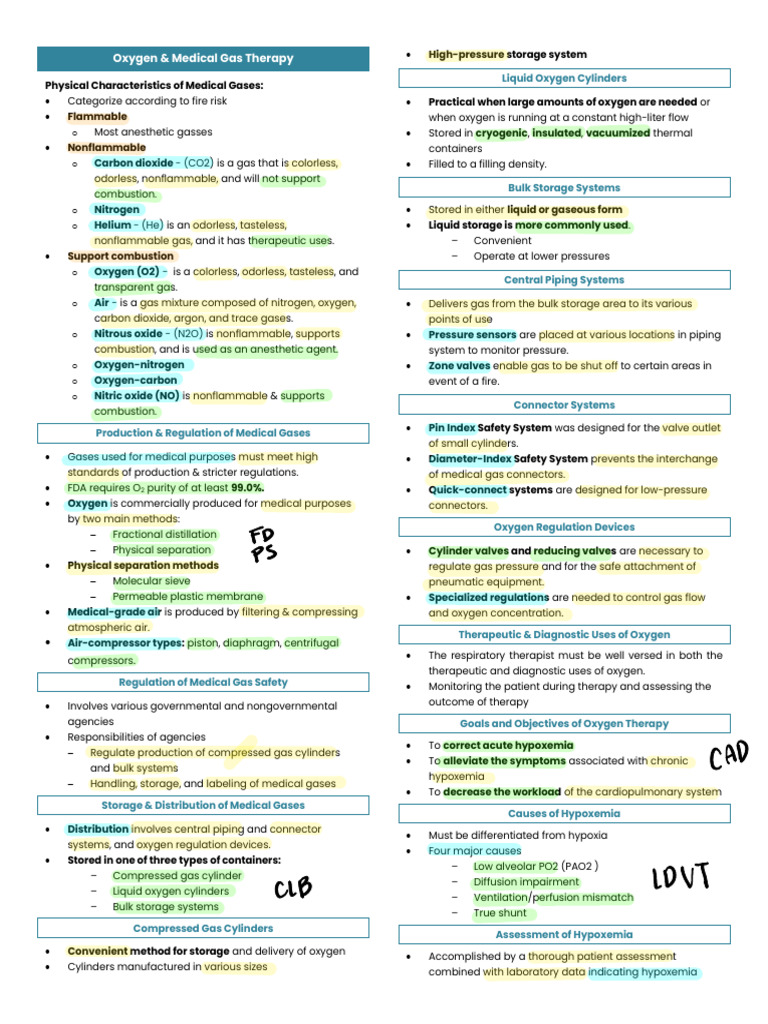 Oxygen & Medical Gas Therapy
Physical Characteristics of Medical Gases:
• Categorize according to fire risk
• Flammable
o Most anesthetic gasses
• Nonflammable
o Carbon dioxide - (CO2) is a gas that is colorless,
odorless, nonflammable, and will not support
combustion.
o Nitrogen
o Helium - (He) is an odorless, tasteless,
nonflammable gas, and it has therapeutic uses.
• Support combustion
o Oxygen (O2) - is a colorless, odorless, tasteless, and
transparent gas.
o Air - is a gas mixture composed of nitrogen, oxygen,
carbon dioxide, argon, and trace gases.
o Nitrous oxide - (N2O) is nonflammable, supports
combustion, and is used as an anesthetic agent.
o Oxygen-nitrogen
o Oxygen-carbon
o Nitric oxide (NO) is nonflammable & supports
combustion.
Production & Regulation of Medical Gases
• Gases used for medical purposes must meet high
standards of production & stricter regulations.
• FDA requires O₂ purity of at least 99.0%.
• Oxygen is commercially produced for medical purposes
by two main methods:
– Fractional distillation
– Physical separation
FD
PS
• Physical separation methods
– Molecular sieve
– Permeable plastic membrane
• Medical-grade air is produced by filtering & compressing
atmospheric air.
• Air-compressor types: piston, diaphragm, centrifugal
compressors.
Regulation of Medical Gas Safety
• Involves various governmental and nongovernmental
agencies
• Responsibilities of agencies
– Regulate production of compressed gas cylinders
and bulk systems
– Handling, storage, and labeling of medical gases
Storage & Distribution of Medical Gases
• Distribution involves central piping and connector
systems, and oxygen regulation devices.
• Stored in one of three types of containers:
– Compressed gas cylinder
– Liquid oxygen cylinders
– Bulk storage systems
CLB
Compressed Gas Cylinders
• Convenient method for storage and delivery of oxygen
• Cylinders manufactured in various sizes
• High-pressure storage system
Liquid Oxygen Cylinders
• Practical when large amounts of oxygen are needed or
when oxygen is running at a constant high-liter flow
• Stored in cryogenic, insulated, vacuumized thermal
containers
• Filled to a filling density.
Bulk Storage Systems
• Stored in either liquid or gaseous form
• Liquid storage is more commonly used.
– Convenient
– Operate at lower pressures
Central Piping Systems
• Delivers gas from the bulk storage area to its various
points of use
• Pressure sensors are placed at various locations in piping
system to monitor pressure.
• Zone valves enable gas to be shut off to certain areas in
event of a fire.
Connector Systems
• Pin Index Safety System was designed for the valve outlet
of small cylinders.
• Diameter-Index Safety System prevents the interchange
of medical gas connectors.
• Quick-connect systems are designed for low-pressure
connectors.
Oxygen Regulation Devices
• Cylinder valves and reducing valves are necessary to
regulate gas pressure and for the safe attachment of
pneumatic equipment.
• Specialized regulations are needed to control gas flow
and oxygen concentration.
Therapeutic & Diagnostic Uses of Oxygen
• The respiratory therapist must be well versed in both the
therapeutic and diagnostic uses of oxygen.
• Monitoring the patient during therapy and assessing the
outcome of therapy
Goals and Objectives of Oxygen Therapy
• To correct acute hypoxemia
• To alleviate the symptoms associated with chronic
hypoxemia
• To decrease the workload of the cardiopulmonary system
CAD
Causes of Hypoxemia
• Must be differentiated from hypoxia
• Four major causes
– Low alveolar PO2 (PAO2 )
– Diffusion impairment
– Ventilation/perfusion mismatch
– True shunt
LDVT
Assessment of Hypoxemia
• Accomplished by a thorough patient assessment
combined with laboratory data indicating hypoxemia